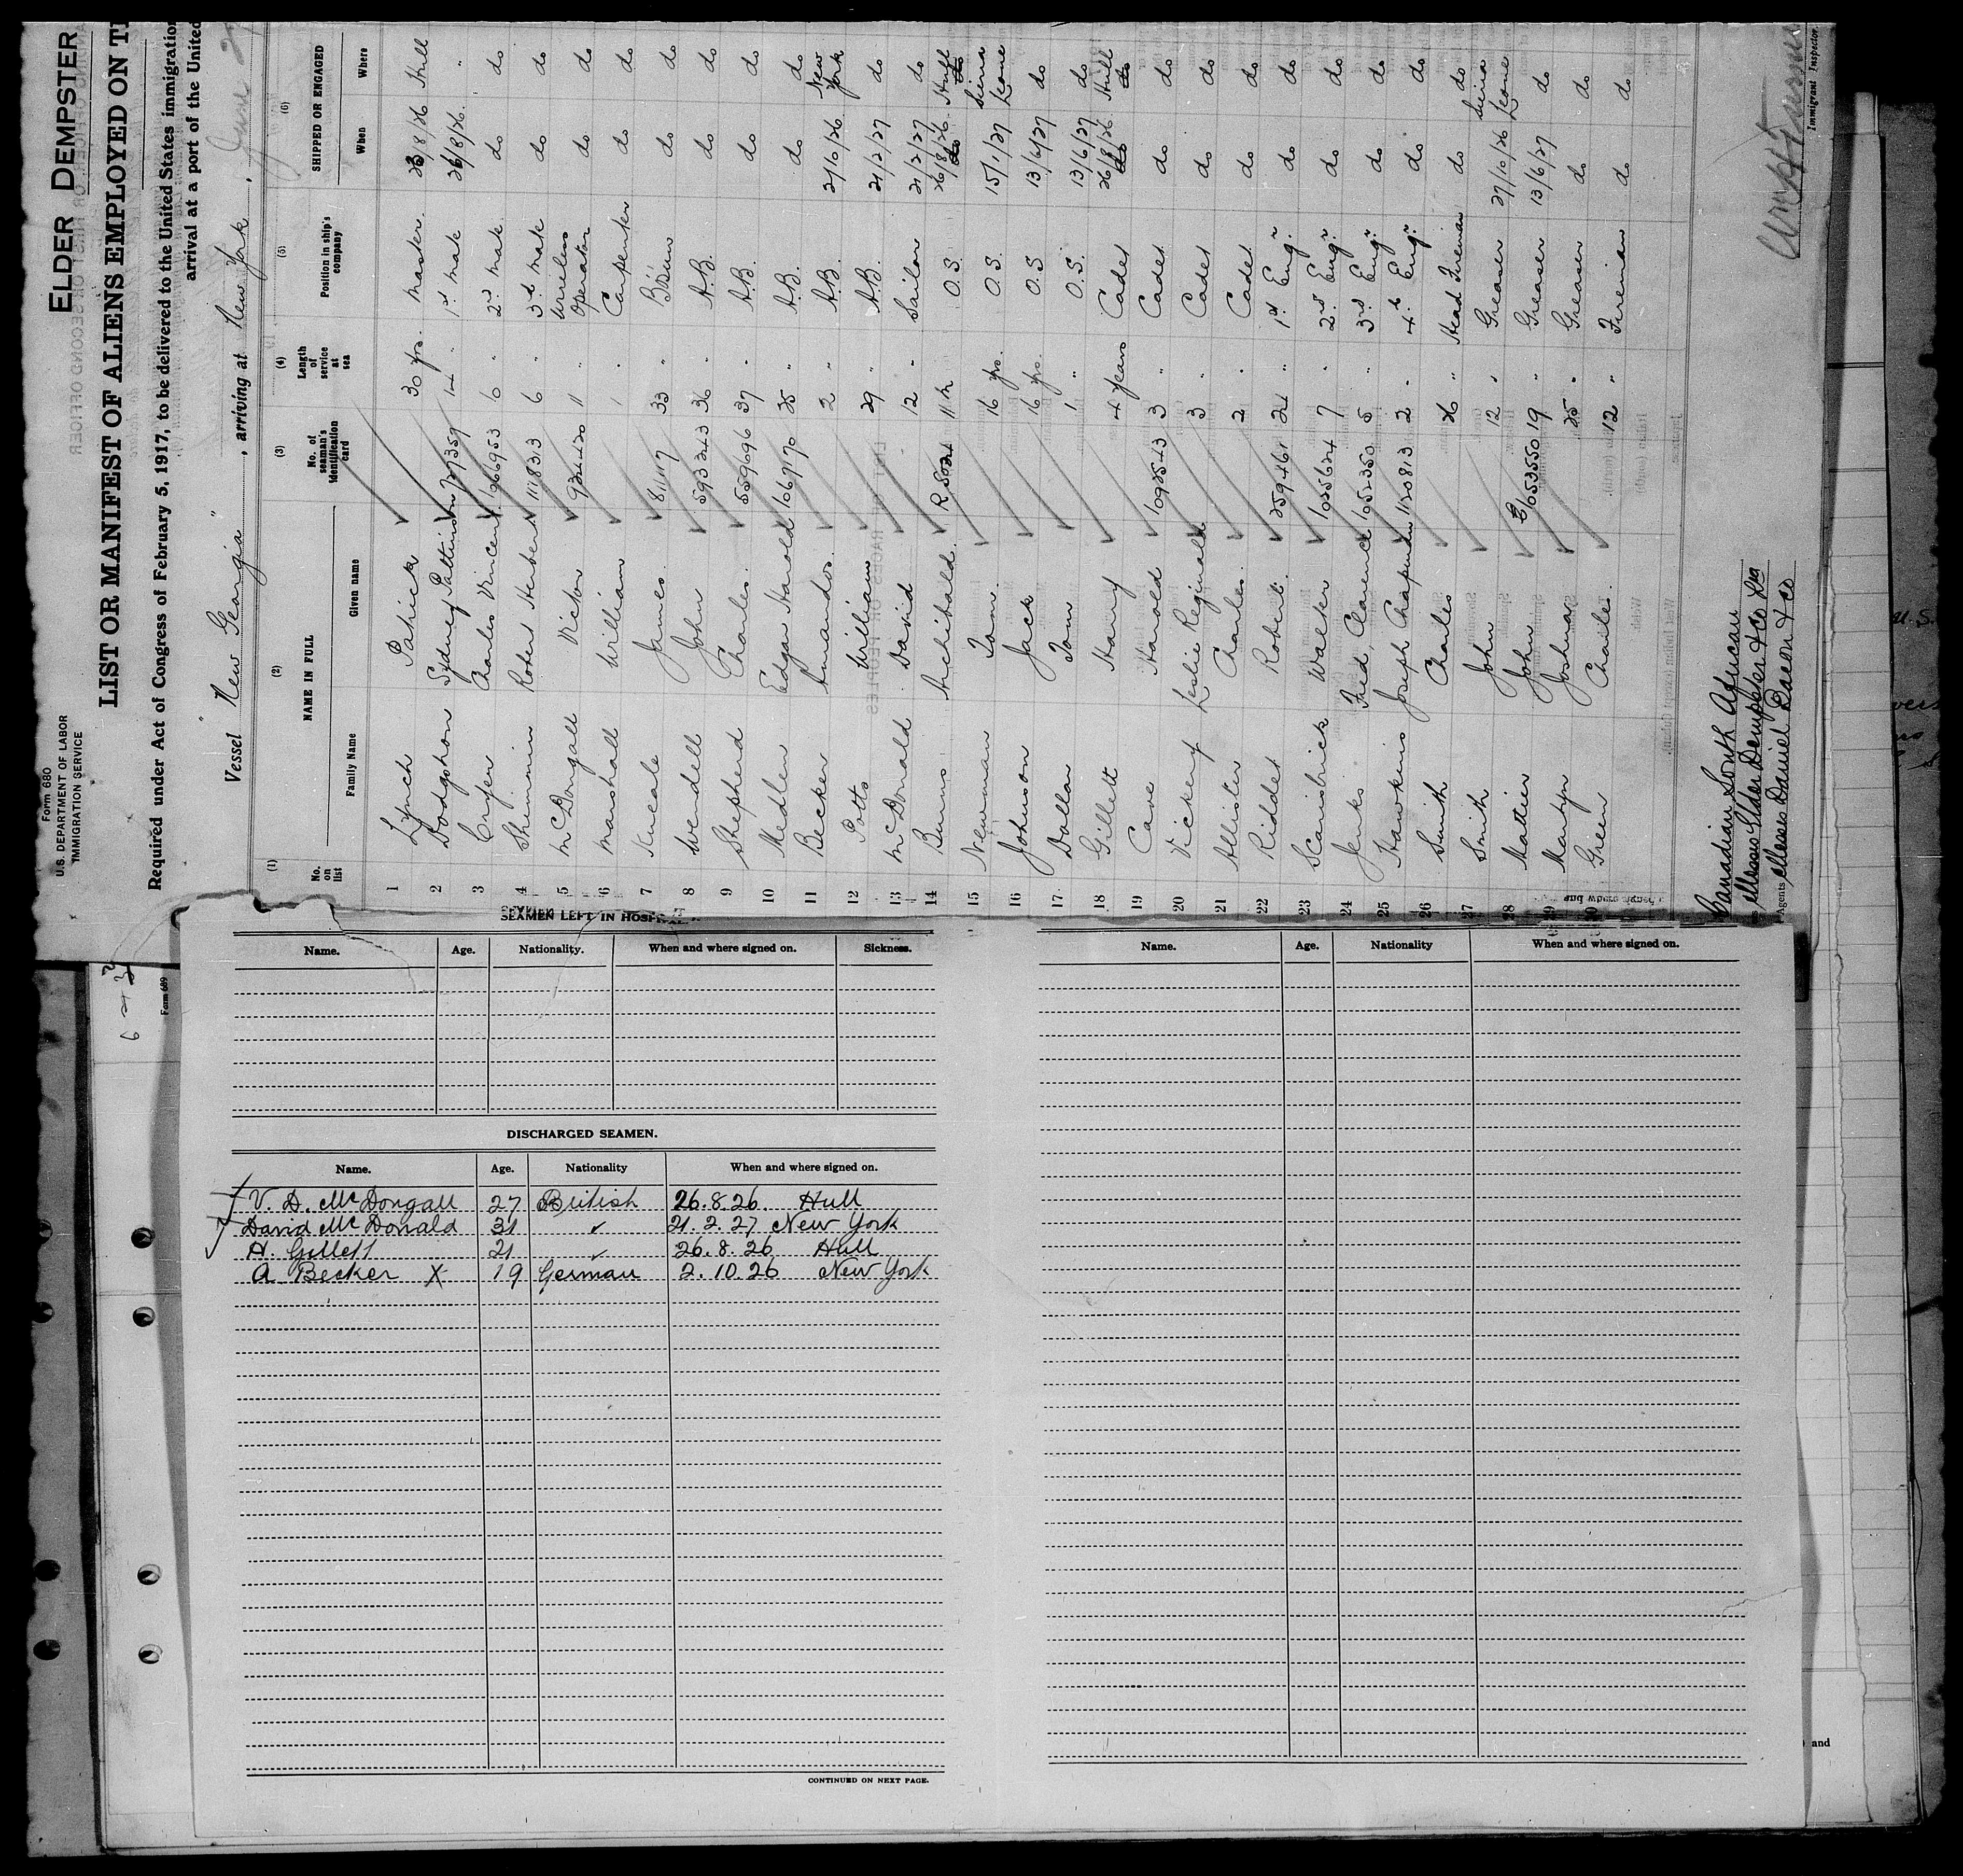 ELDER DEMPSTER
Form 680
U.S. DEPARTMENT OF LABOR
IMMIGRATION SERVICE
LIST OR MANIFEST OF ALIENS EMPLOYED ON T
Required under Act of Congress of February 5, 1917, to be delivered to the United States immigration
arrival at a port of the United
Vessel "New Georgia", arriving at New York, June 27
(1) (2) (3) (4) (5) (6)
No. on list NAME IN FULL No. of seaman's identification card Length of service at sea Position in ship's company SHIPPED OR ENGAGED
Family Name Given name When Where
1 Lynch Patrick 30 yrs. Master 26/8/26 Hull
2 Dodgshon Sidney Pattinson 727359 14 " 1st Mate 26/8/26 "
3 Cryer Charles Vincent 1066953 6 " 2nd Mate do do
4 Shimmin Robert Herbert 117833 6 " 3rd Mate do do
5 McDougall Victor 932420 11 " Wireless Operator do do
6 Marshall William 1 " Carpenter do do
7 Kneale James 81117 33 " B'Sun do do
8 Wendell John 593343 36 " A.B. do do
9 Shepherd Charles 559696 37 " A.B. do do
10 Medlen Edgar Harold 1069170 25 " A.B. do do
11 Becker Amandos 2 " A.B. 2/10/26 New York
12 Potts William 29 " A.B. 21/2/27 do
13 McDonald David 12 " Sailor 21/2/27 do
14 Burns Archibald R.5024 O.S. 26/8/26 Hull
15 Newman Tom 16 yrs. O.S. 15/1/27 Sierra Leone
16 Johnson Jack 16 yrs. O.S. 13/6/27 do
17 Dollar Tom 1 " O.S. 13/6/27 do
18 Gillett Harry 4 years Cadet 26/8/26 Hull
19 Cave Harold 1092543 3 " Cadet do do
20 Vickery Leslie Reginald 3 " Cadet do do
21 Allister Charles 2 " Cadet do do
22 Riddet Robert 259461 21 " 1st Eng'r do do
23 Scarisbrick Walker 1025624 7 " 2nd Eng'r do do
24 Jenks Fred, Clarence 1052350 5 " 3rd Eng'r do do
25 Hawkins Joseph 1120813 2 " 4th Eng'r do do
26 Smith Charles 26 " Head Fireman do do
27 Smith John 12 " Greaser 27/10/26 Sierra Leone
28 Mattier John 1053550 19 " Greaser 13/6/27 do
29 Martyn Joshua 25 " Greaser do do
30 Green Charlie 12 " Fireman do do
Canadian South African
Messrs Elder Dempster & Co Ltd
Agents Messrs Daniel Bacon & Co
Immigrant Inspector.
Form 689
SEAMEN LEFT IN HOSPITAL
Name. Age. Nationality. When and where signed on. Sickness.
Name. Age. Nationality When and where signed on.
DISCHARGED SEAMEN.
Name. Age. Nationality When and where signed on.
V. D. McDougall 27 British 26.8.26. Hull
David McDonald 31 " 21.2.27 New York
H. Gillett 21 " 26.8.26 Hull
A Becker X 19 German 2.10.26 New York
CONTINUED ON NEXT PAGE.
and